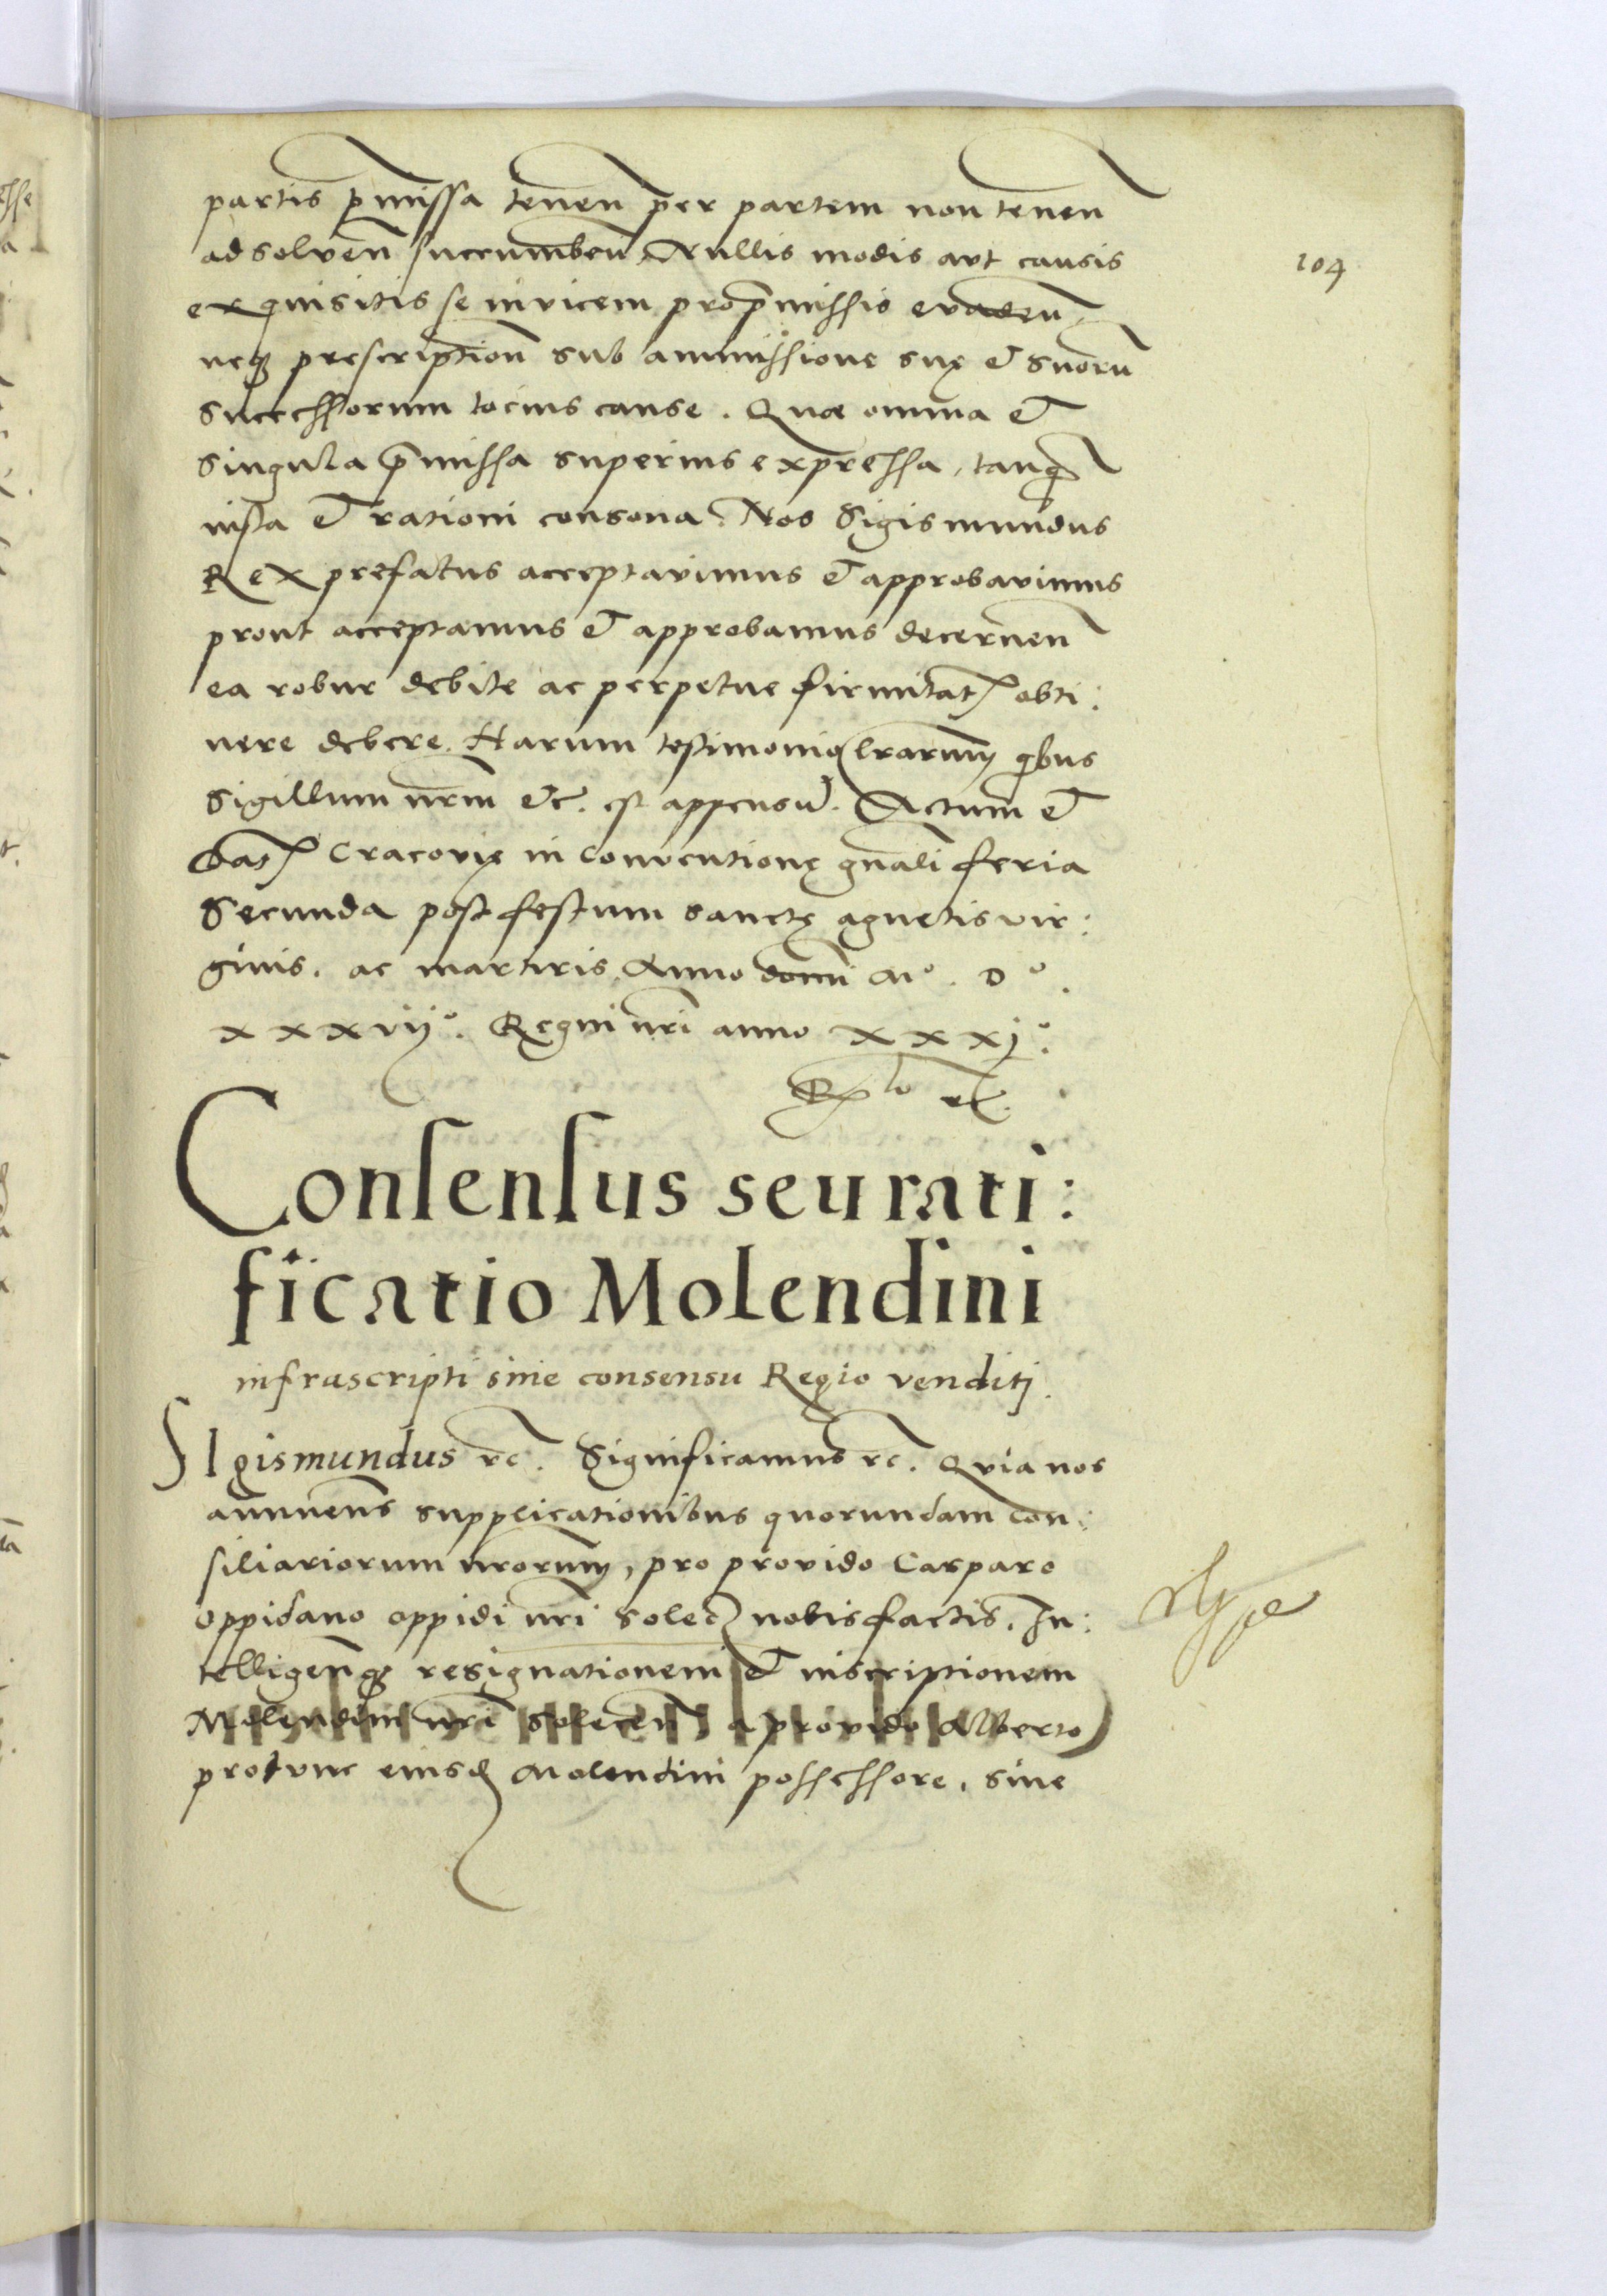 partis p̄missa tenen̄ per partem non tenen̄
ad solven̄ succumben̄, Nullis modis aut causis
exquisitis se invicem pro p̄missis evaden̄
neqȝ prescription̄ sub ammissione suę et suorū
Successorum tocius cause. Quæ omnia et
Singula p̄missa superius expressa, tanq̄
iusta et rationi consona. Nos Sigismundus
Rex prefatus acceptavimus et approbavimus
prout acceptamus et approbamus decernen̄
ea robur debite ac perpetue firmitat obti:
nere debere. Harum testimonio lrarum qbus
Sigillum nrm̄ etc. est appensū. Actum et
Dat Cracovię in conventionę gn̄ali feria
Secunda post festum sanctę agnetis vir:
ginis. ac martiris, Anno domi M°. D°.
xxxvij°. Regni nrī anno xxxj°.
Rlo rc.
Consensus seu rati:
ficatio Molendini
infrascripti sine consensu Regio venditj.
SIgismundus rc. Significamus rc. Quia nos
annuens supplicationibus quorundam con:
siliariorum nrorum, pro provido Casparo
oppidano oppidi nrī Solec nobis factis. In:
telligen̄qȝ resignationem et inscriptionem
Molendini nrī Solecen̄, a provido Alberto
protunc eiusd Molendini possessore, sine
104